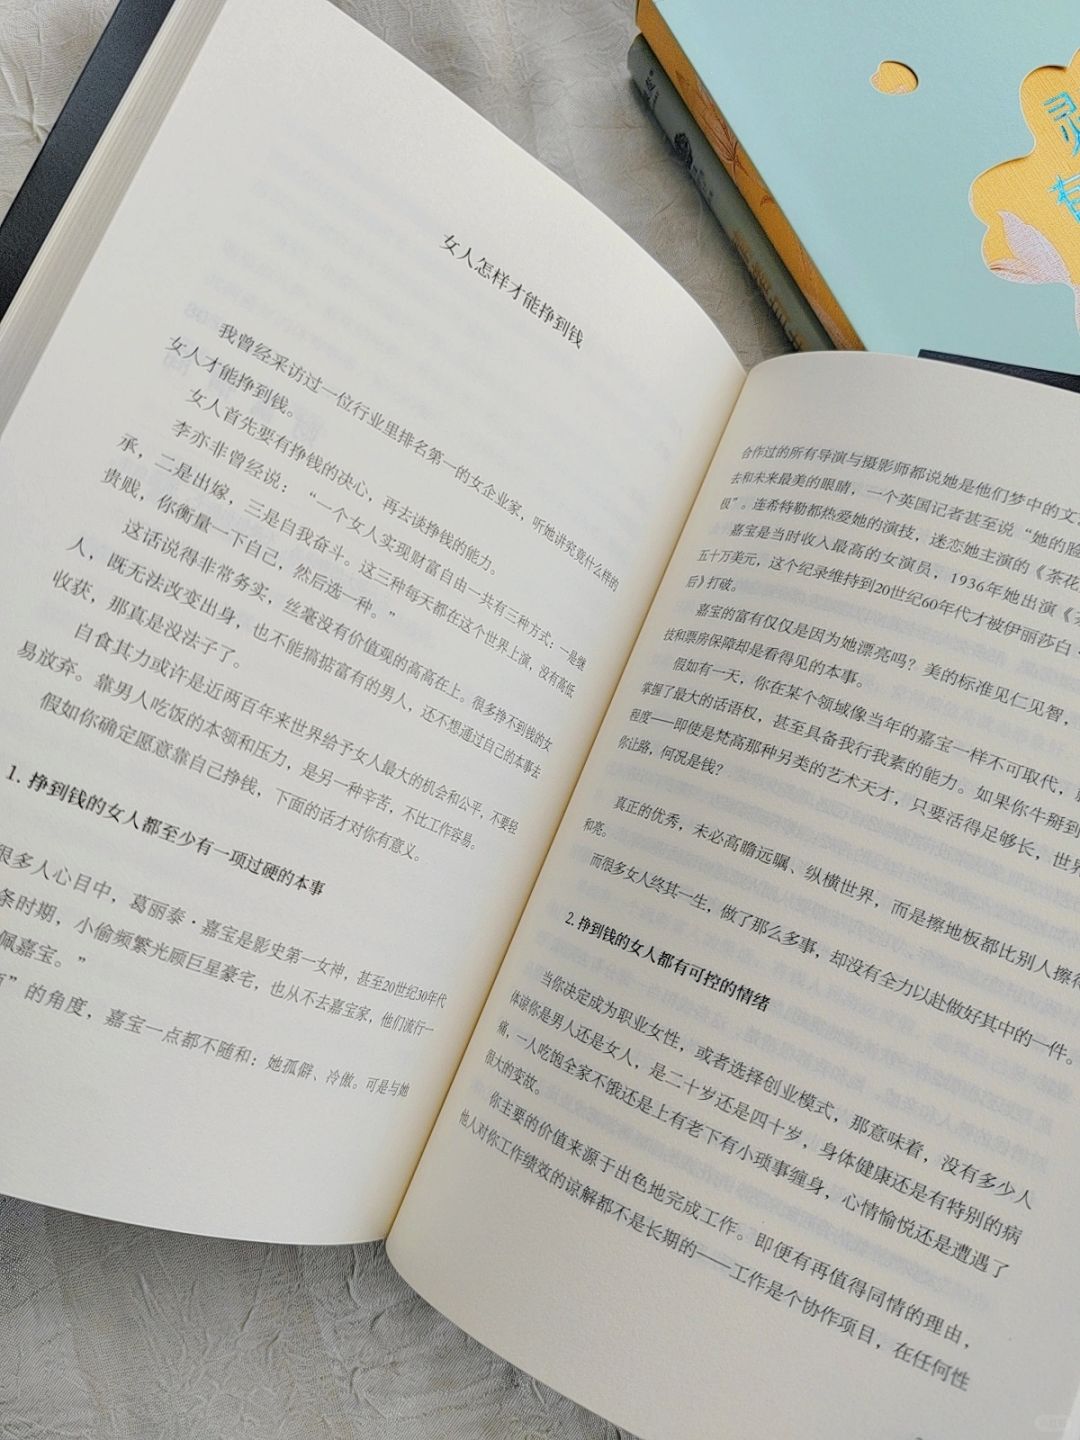 女人怎样才能挣到钱
我曾经采访过一位行业里排名第一的女企业家，听她讲究竟什么样的
女人才能挣到钱。
女人首先要有挣钱的决心，再去谈挣钱的能力。
李亦非曾经说：“一个女人实现财富自由一共有三种方式：一是继
承，二是出嫁，三是自我奋斗。这三种每天都在这个世界上演，没有高低
贵贱，你衡量一下自己，然后选一种。”
这话说得非常务实，丝毫没有价值观的高高在上。很多挣不到钱的女
人，既无法改变出身，也不能搞掂富有的男人，还不想通过自己的本事去
收获，那真是没法子了。
自食其力或许是近两百年来世界给予女人最大的机会和公平，不要轻
易放弃。靠男人吃饭的本领和压力，是另一种辛苦，不比工作容易。
假如你确定愿意靠自己挣钱，下面的话才对你有意义。
1. 挣到钱的女人都至少有一项过硬的本事
很多人心目中，葛丽泰·嘉宝是影史第一女神，甚至20世纪30年代
条时期，小偷频繁光顾巨星豪宅，也从不去嘉宝家，他们流行一
佩嘉宝。”
”的角度，嘉宝一点都不随和：她孤僻、冷傲。可是与她
合作过的所有导演与摄影师都说她是他们梦中的文
去和未来最美的眼睛，一个英国记者甚至说“她的脸
极”。连希特勒都热爱她的演技，迷恋她主演的《茶花
嘉宝是当时收入最高的女演员，1936年她出演《茶
五十万美元，这个纪录维持到20世纪60年代才被伊丽莎白·
后》打破。
嘉宝的富有仅仅是因为她漂亮吗？美的标准见仁见智，
技和票房保障却是看得见的本事。
假如有一天，你在某个领域像当年的嘉宝一样不可取代，
掌握了最大的话语权，甚至具备我行我素的能力。如果你牛掰到
程度——即使是梵高那种另类的艺术天才，只要活得足够长，世界
你让路，何况是钱？
真正的优秀，未必高瞻远瞩、纵横世界，而是擦地板都比别人擦得
和亮。
而很多女人终其一生，做了那么多事，却没有全力以赴做好其中的一件。
2. 挣到钱的女人都有可控的情绪
当你决定成为职业女性，或者选择创业模式，那意味着，没有多少人
体谅你是男人还是女人，是二十岁还是四十岁，身体健康还是有特别的病
痛，一人吃饱全家不饿还是上有老下有小琐事缠身，心情愉悦还是遭遇了
很大的变故。
你主要的价值来源于出色地完成工作。即便有再值得同情的理由，
他人对你工作绩效的谅解都不是长期的——工作是个协作项目，在任何性